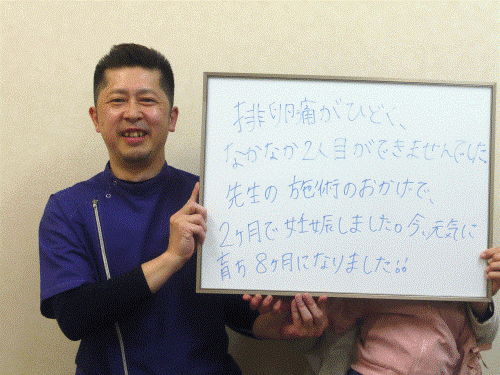 排卵痛がひどく、
なかなか2人目ができませんでした。
先生の施術のおかげで、
2ヶ月で妊娠しました。今、元気に
育ち8ヶ月になりました!!